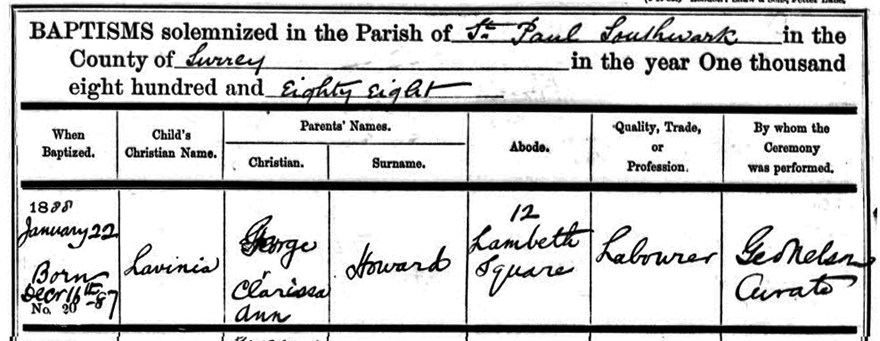 BAPTISMS solemnized in the Parish of St. Paul Southwark in the
County of Surrey in the year One thousand
eight hundred and Eighty Eight
When Baptized.
Child's Christian Name.
Parents' Names.
Christian.
Surname.
Abode.
Quality, Trade, or Profession.
By whom the Ceremony was performed.
1888
January 22
Born
Decr 16th -87
No. 20
Lavinia
George
Clarissa
Ann
Howard
12
Lambeth
Square
Labourer
Geo Nelson
Curate